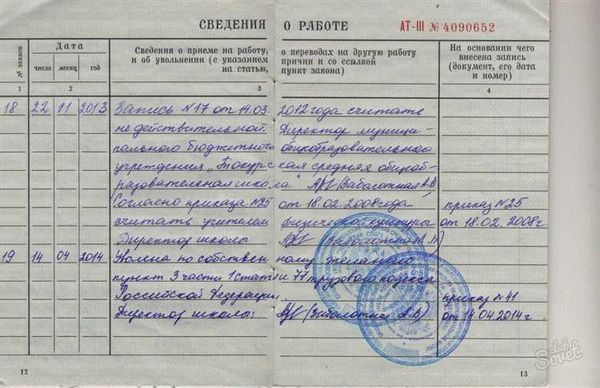 СВЕДЕНИЯ О РАБОТЕ АТ-III № 4090652
№ записи
Дата
число месяц год
Сведения о приеме на работу, о переводах на другую работу
и об увольнении (с указанием причин и со ссылкой
на статью, пункт закона)
На основании чего
внесена запись
(документ, его дата
и номер)
1 2 3 4
18 22 11 2013 Запись №17 от 14.03. 2012 года считать
не действительной. Директор муници-
пального бюджетного общеобразовательного
учреждения „Токурская средняя общеоб-
разовательная школа" (Заболотная А.В)
Согласно приказа №25 от 18.02.2008 года приказ №25
считать учителем физической культуры от 18.02.2008г
Директор школы (Заболотная А.В)
19 14 04 2014 Уволена по собственному желанию
пункт 3 части 1 статьи 77 трудового кодекса
Российской Федерации. приказ №41
Директор школы: (Заболотная А.В) от 14.04.2014г.
12 13
Sovet